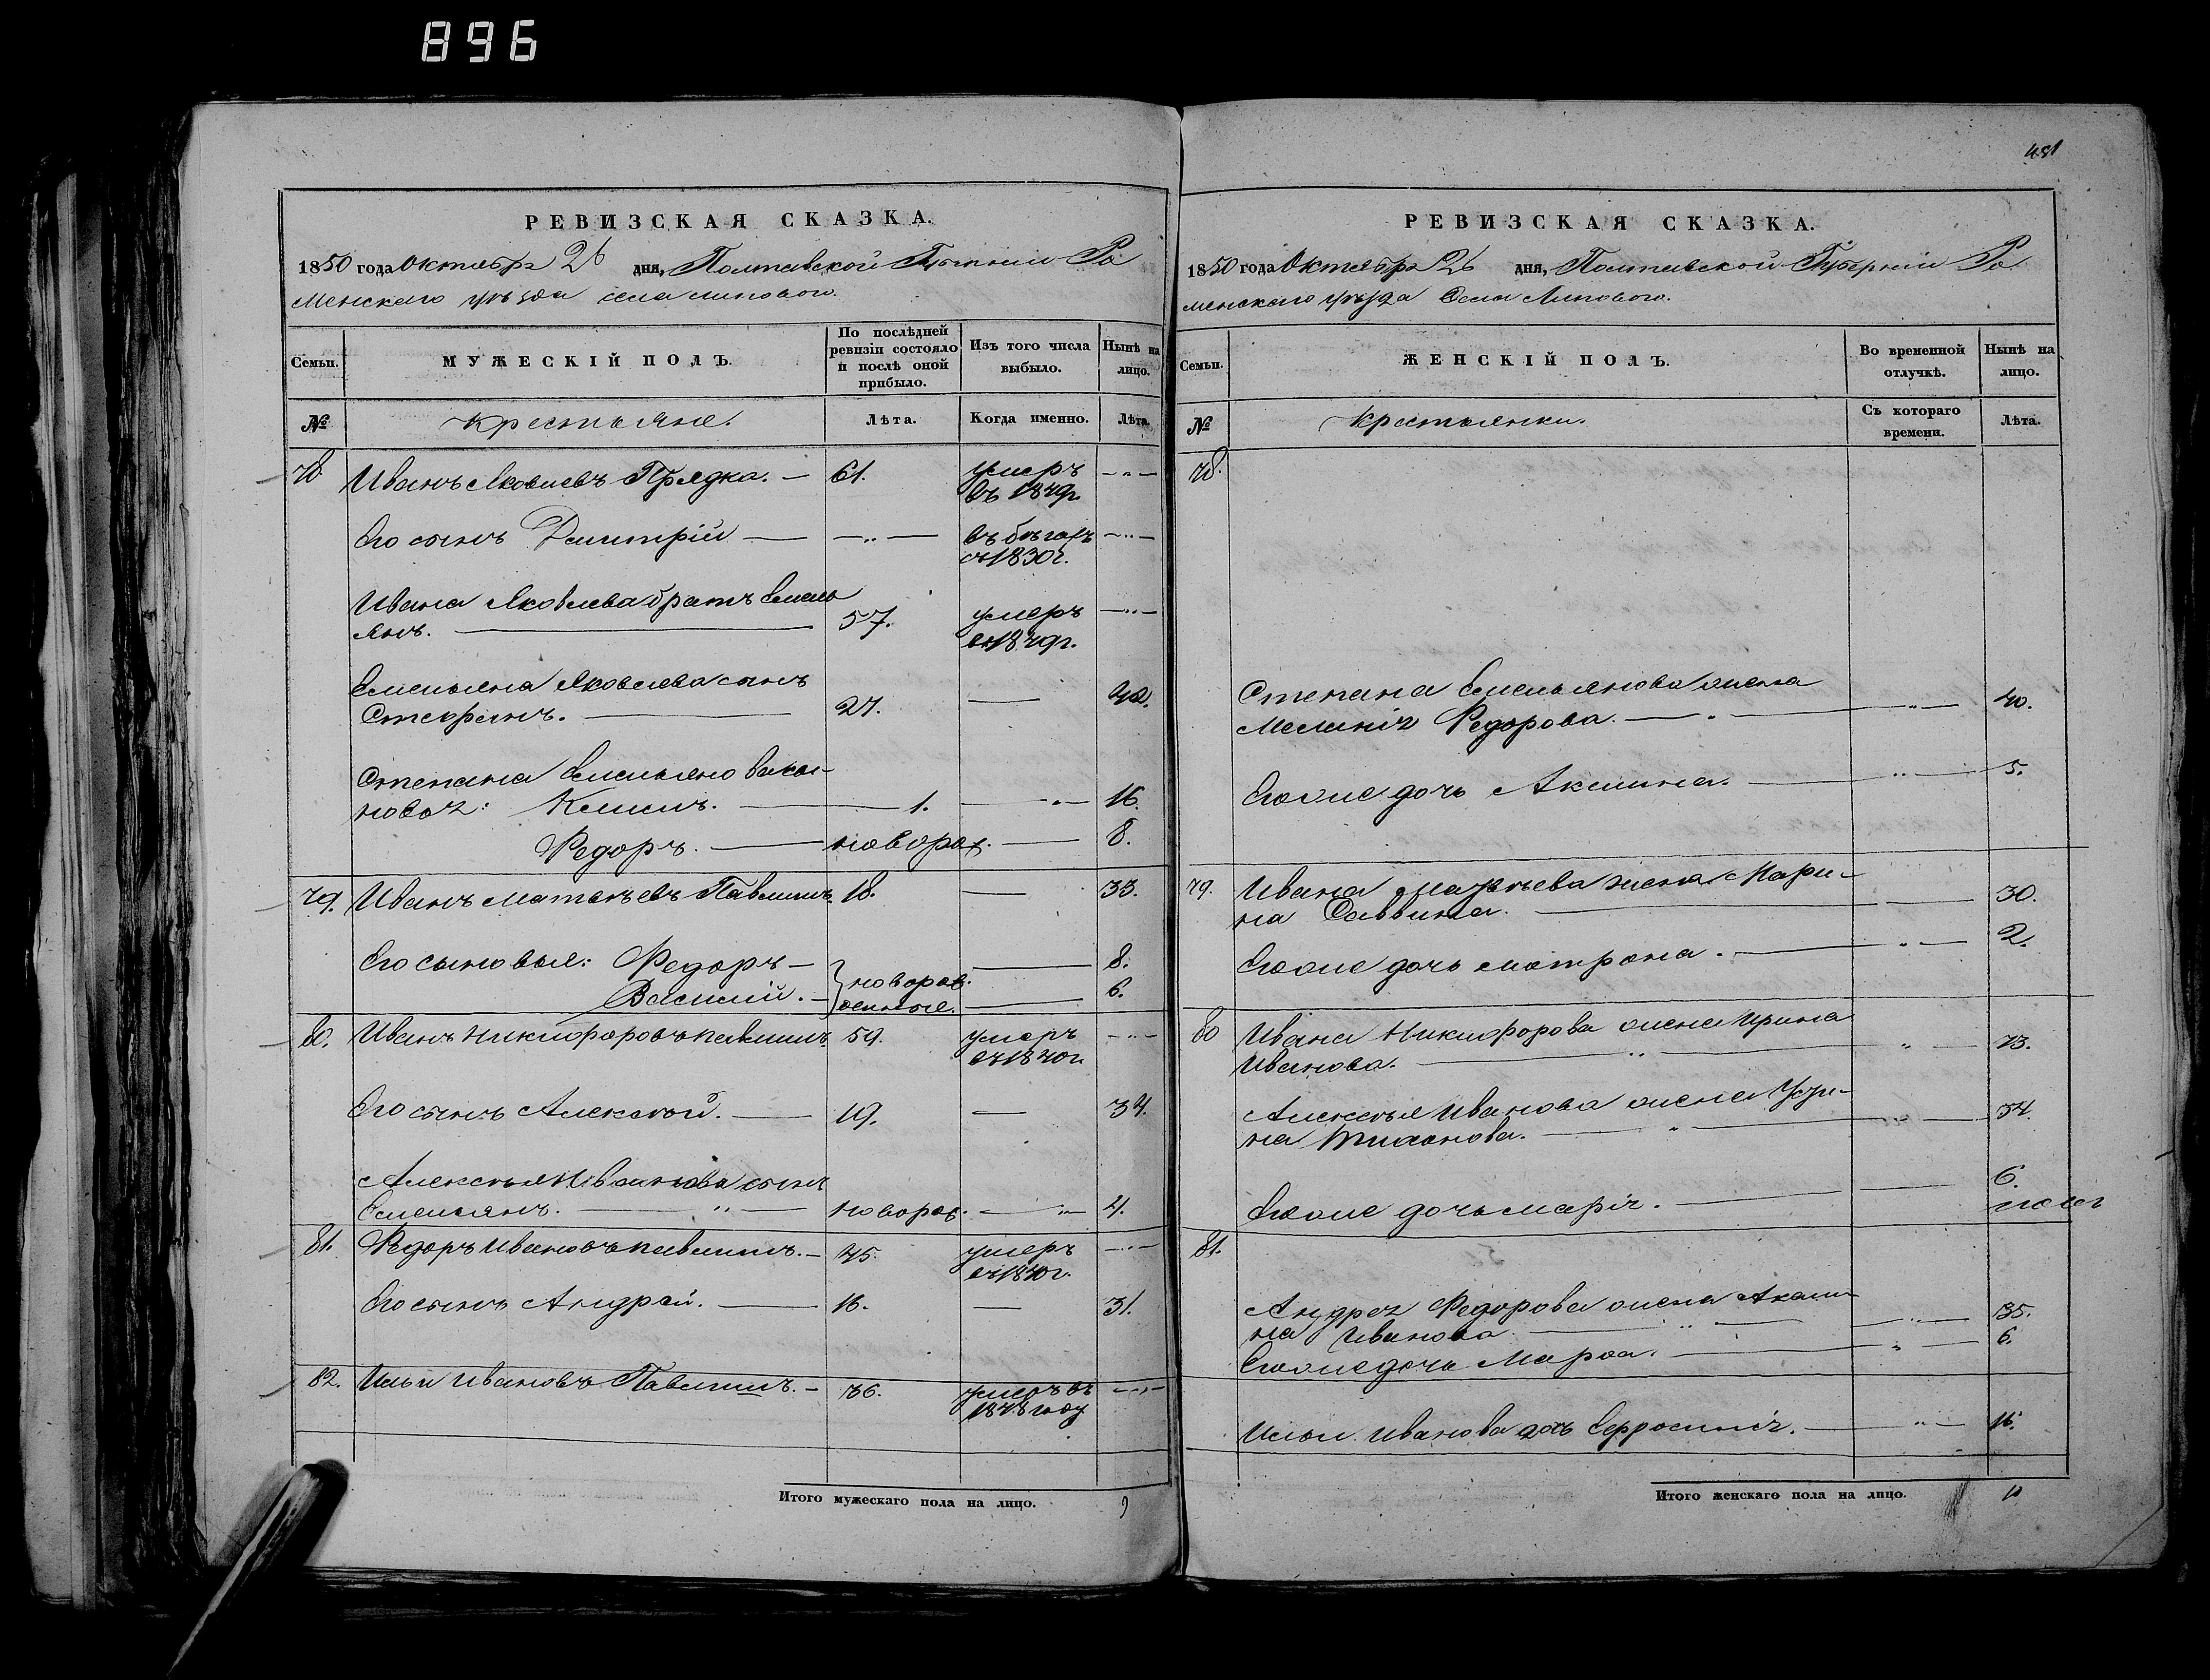 896
РЕВИЗСКАЯ СКАЗКА.
1850 года Октября 26 дня, Полтавской Губерніи Ро
менскаго уѣзда села Липового.
Семьи.
МУЖЕСКІЙ ПОЛЪ.
По послѣдней
ревизіи состояло
и послѣ оной
прибыло.
Изъ того числа
выбыло.
Нынѣ на
лицо.
№
Крестьяне.
Лѣта.
Когда именно.
Лѣта.
78 Иванъ Яковлевъ Прядка. — 61. умеръ — " —
въ 1849г.
Его сынъ Дмитрій — — " — въ бѣгахъ — " —
съ 1830г.
Ивана Яковлева братъ Емель
янъ. — 57. умеръ — " —
въ 1849г.
Емельяна Яковлева сынъ
Стефанъ. — 27. — 42.
Степана Емельянова сы-
новья: Климъ. — 1. — " — 16.
Федоръ. — новорож. — 8.
79. Иванъ Матвѣевъ Павлишъ 18. — 33.
Его сыновья: Федоръ — новорож- — 8.
Василій. — денные. — 6.
80. Иванъ Никифоровъ Павлишъ 59. умеръ — " —
въ 1840г.
Его сынъ Алексѣй. — 19. — 34.
Алексѣя Иванова сынъ
Емельянъ. — " — новорож. — " — 4.
81. Федоръ Ивановъ Павлишъ. — 45. умеръ — " —
въ 1840г.
Его сынъ Андрей. — 16. — 31.
82. Илья Ивановъ Павлишъ. — 36. умеръ въ — " —
1848 году
Итого мужескаго пола на лицо. 9
481
РЕВИЗСКАЯ СКАЗКА.
1850 года Октября 26 дня, Полтавской Губерніи Ро
менскаго уѣзда Села Липового.
Семьи.
ЖЕНСКІЙ ПОЛЪ.
Во временной
отлучкѣ.
Нынѣ на
лицо.
№
Крестьянки.
Съ котораго
времени.
Лѣта.
78.
Степана Емельянова жена
Меланія Федорова. — " — " — 40.
Его же дочь Акилина. — " — 5.
79. Ивана Матвѣева жена Мари-
на Саввина. — 30.
Его же дочь Матрона. — " — 2.
80 Ивана Никифорова жена Ирина
Иванова. — " — " — 73.
Алексѣя Иванова жена Усти-
на Тихонова. — " — " — 34.
Его же дочь Марія. — 6.
81.
Андрея Федорова жена Акили-
на Иванова. — " — " — 35.
Его же дочь Марфа. — " — 6.
Ильи Иванова дочь Евфросинія. — " — 16.
Итого женскаго пола на лицо. 10